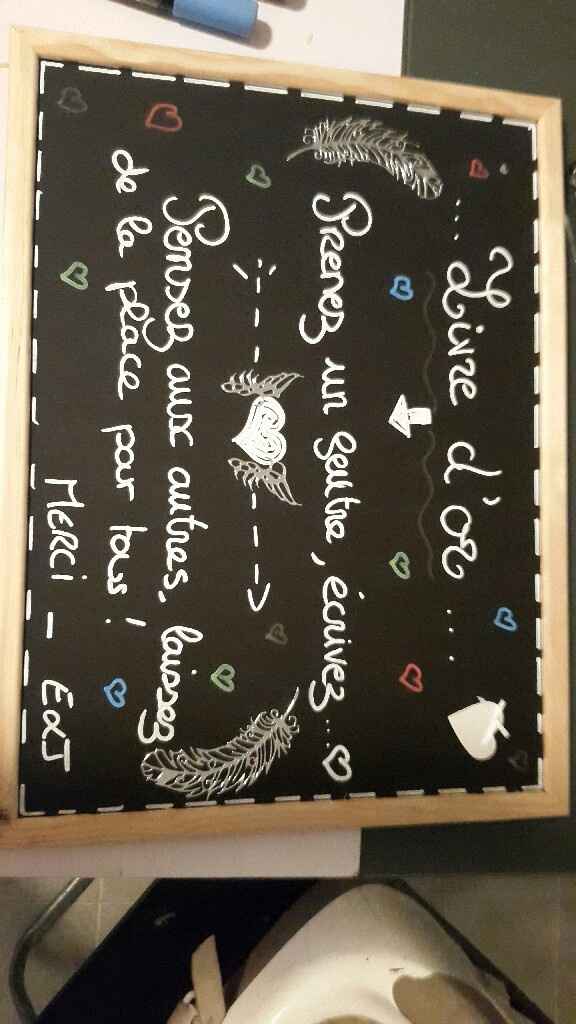 ... Livre d'or ...
Prenez un feutre, écrivez...
Pensez aux autres, laissez
de la place pour tous !
MERCI - E&J